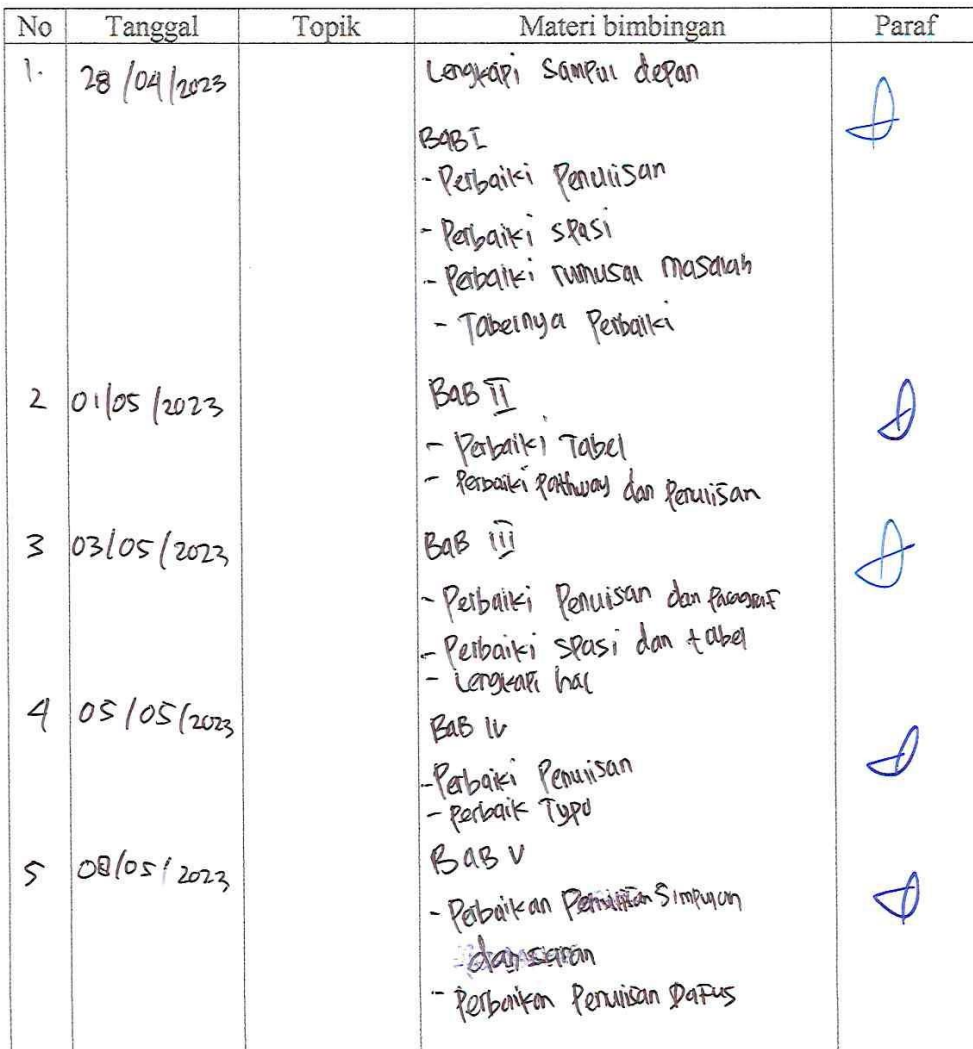 No Tanggal Topik Materi bimbingan Paraf
1. 28/04/2023 Lengkapi Sampul depan
BAB I
- Perbaiki Penulisan
- Perbaiki spasi
- Perbaiki rumusan masalah
- Tabelnya Perbaiki
2 01/05/2023 BAB II
- Perbaiki Tabel
- Perbaiki Pathway dan Penulisan
3 03/05/2023 BAB III
- Perbaiki Penulisan dan Paragraf
- Perbaiki spasi dan tabel
- Lengkapi hal
4 05/05/2023 BAB IV
- Perbaiki Penulisan
- Perbaik Typo
5 08/05/2023 BAB V
- Perbaikan Penulisan Simpulan
dan saran
- Perbaikan Penulisan Dafus